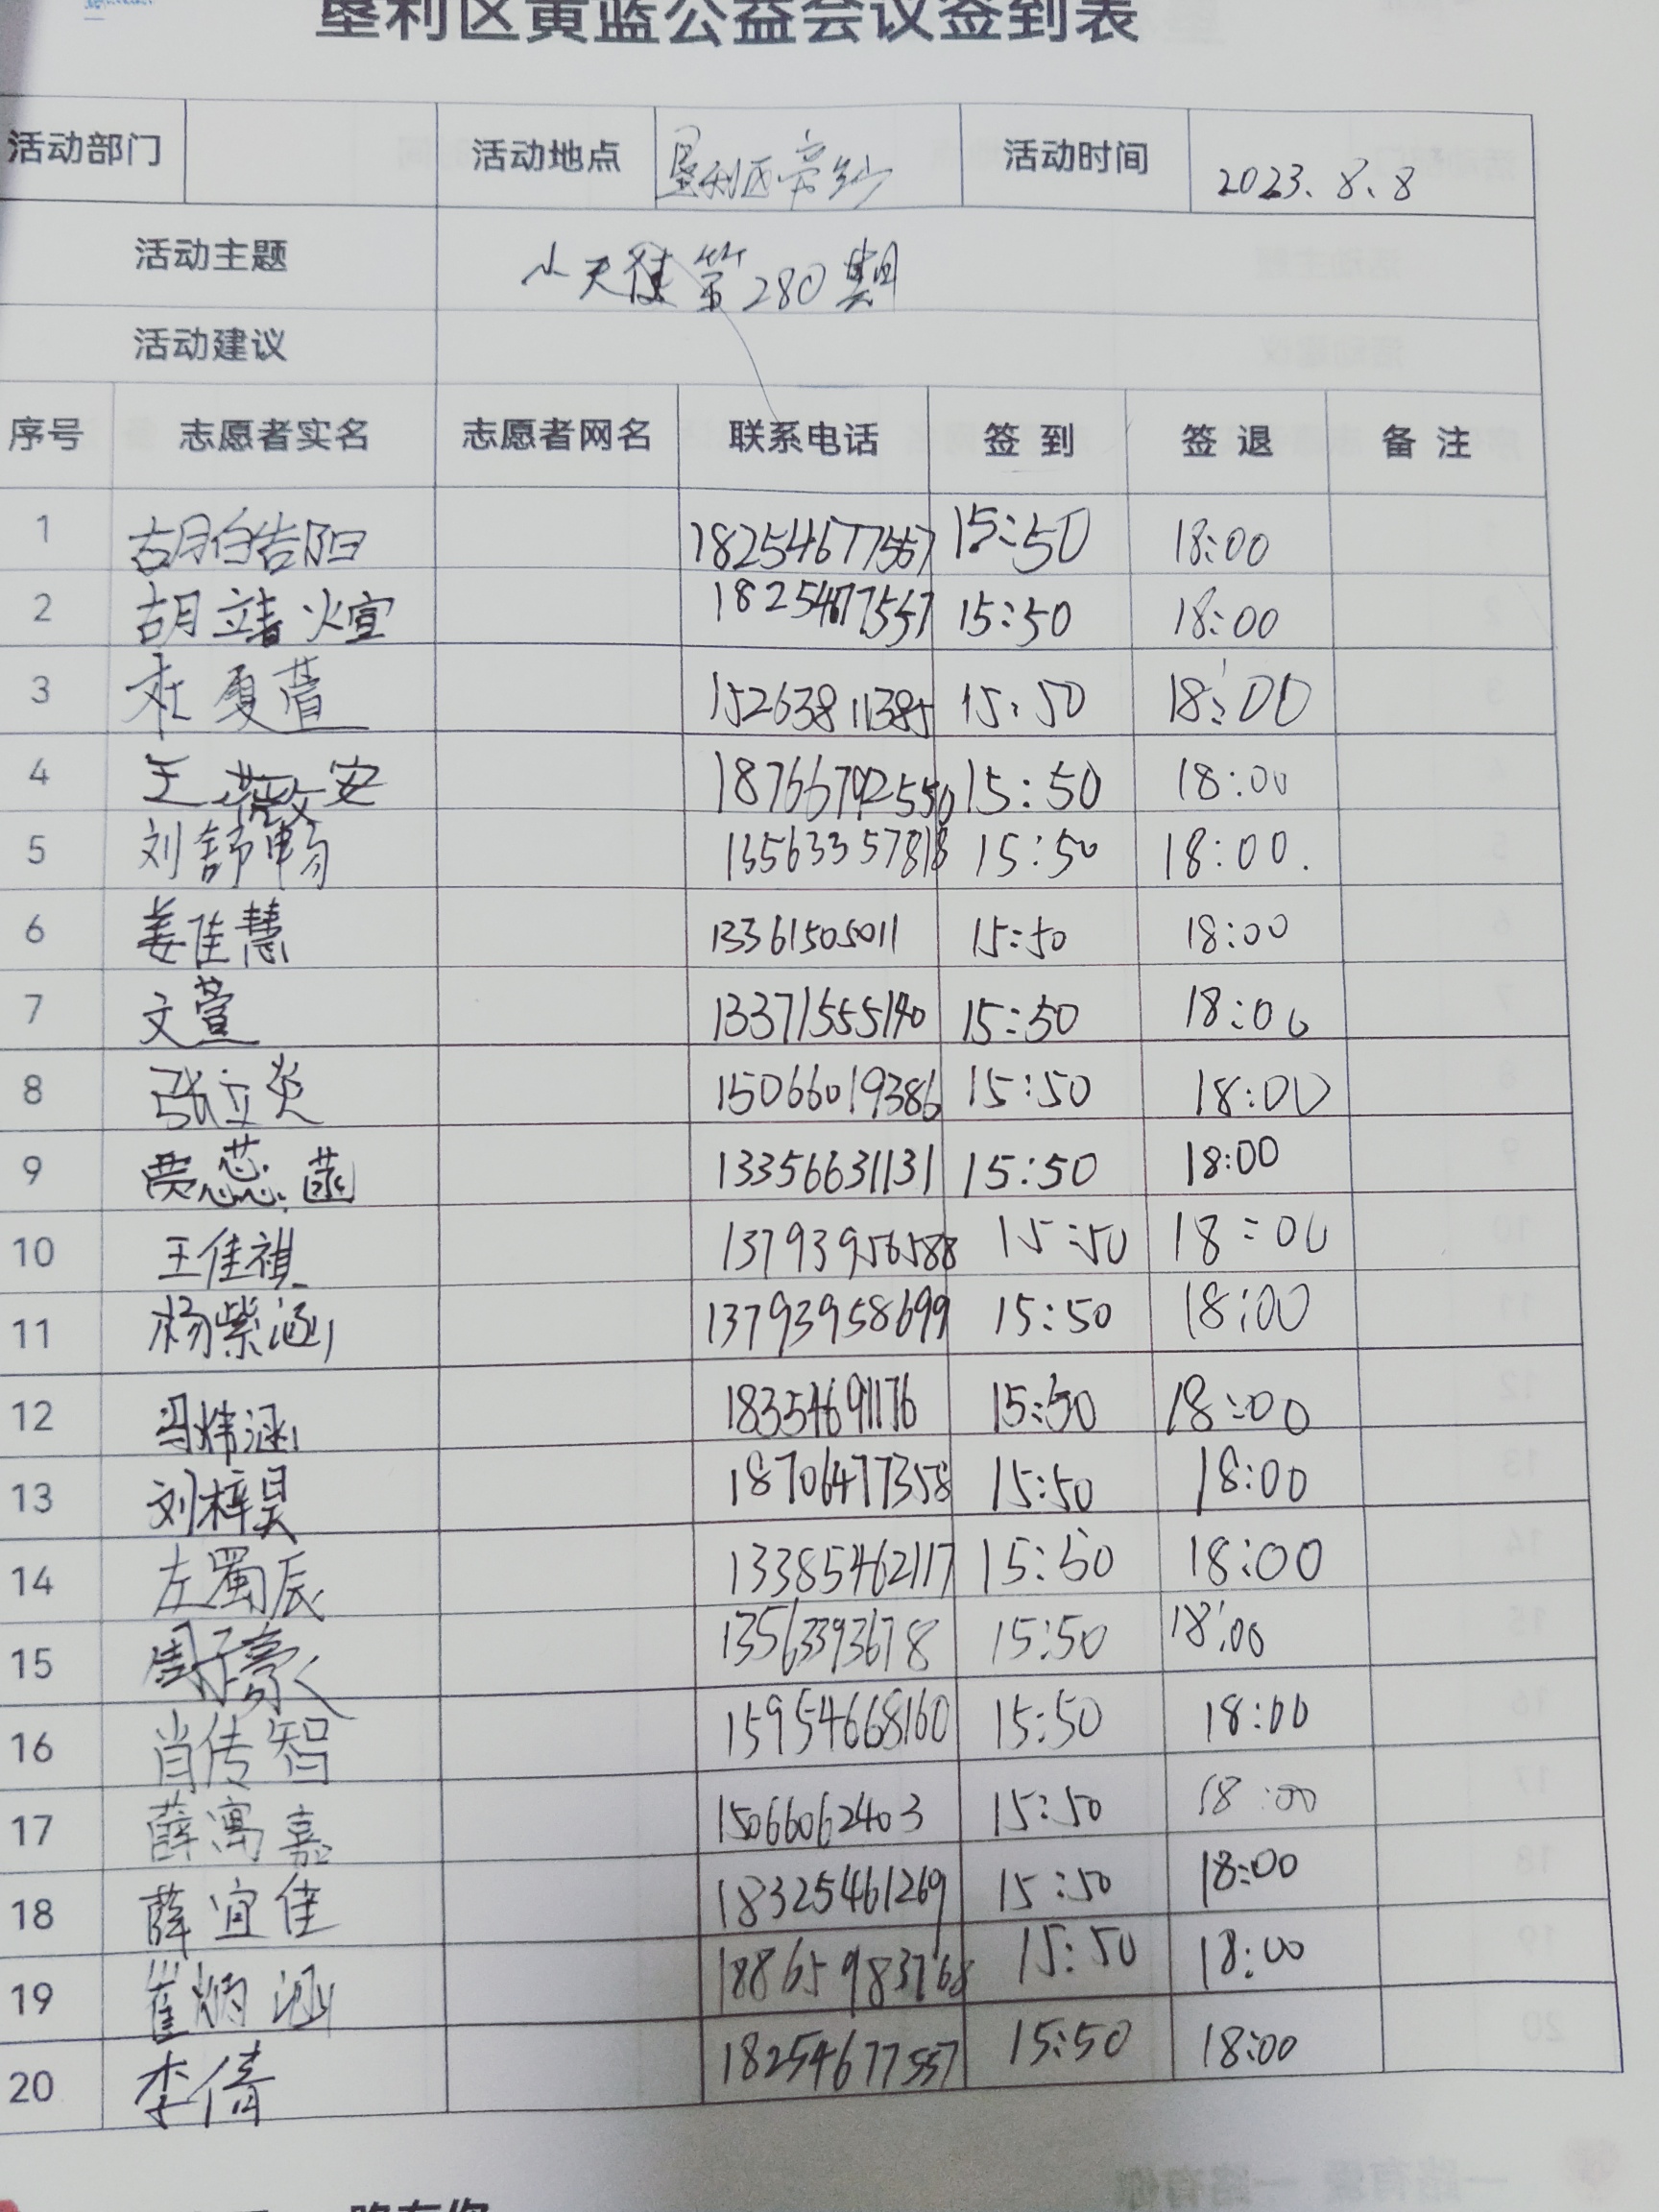 垦利区黄蓝公益会议签到表
活动部门 活动地点 垦利区 活动时间 2023.8.8
活动主题 小天使第280期
活动建议
序号 志愿者实名 志愿者网名 联系电话 签到 签退 备注
1 胡皓阳 18254677557 15:50 18:00
2 胡靖煊 1825477557 15:50 18:00
3 杜夏萱 15263811385 15:50 18:00
4 王薇安 18766792550 15:50 18:00
5 刘舒畅 13563357818 15:50 18:00.
6 姜佳慧 13361505011 15:50 18:00
7 文萱 13371555140 15:50 18:00
8 张立炎 15066019386 15:50 18:00
9 贾蕊菡 13356631131 15:50 18:00
10 王佳祺 13793956588 15:50 18:00
11 杨紫涵 13793958699 15:50 18:00
12 冯炜涵 18354691176 15:50 18:00
13 刘梓昊 18706477358 15:50 18:00
14 左蜀辰 13385462117 15:50 18:00
15 周子豪 13563393678 15:50 18:00
16 肖传智 15954668160 15:50 18:00
17 薛寓嘉 15066062403 15:50 18:00
18 薛宜佳 18325461269 15:50 18:00
19 崔炳涵 18865983768 15:50 18:00
20 李倩 18254677557 15:50 18:00